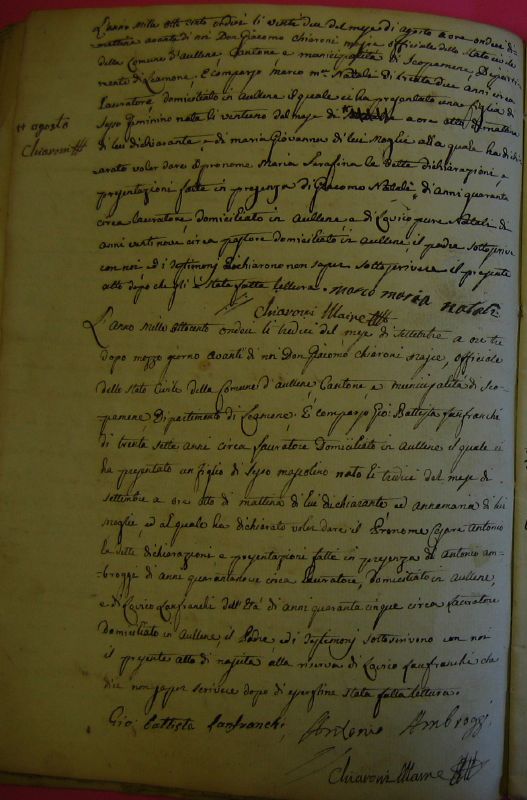 L'anno Mille otto cento ondeci li venti due del mese di agosto a ore ondeci di
mattina avanti di noi Don Giacomo Chiaroni maire officiale dello stato civile
della Comune d'aullene Cantone e municipalità di Scopamene, Diparti-
mento di Liamone. È comparso marco m.a Natali di trenta due anni circa
Lauratore domiciliato in aullene il quale ci ha presentato una figlia di
sesso feminino nata li ventuno del mese di a ore otto di mattina
11 agosto
Chiaroni
di lui dichiarante, e di maria Giovanna di lui Moglie alla quale ha dichi-
arato voler dare il pronome Maria Serafina le dette dichiarazioni, e
presentazioni fatte in presenza di Giacomo Natali di anni quaranta
circa lauratore domiciliato in aullene e di Lovico pure Natali di
anni venti nove circa pastore domiciliato in aullene il padre sottoscrive
con noi ed i Testimonj dichiarono non saper sottoscrivere il presente
atto dopo che gli è stata fatta lettura. marco maria natali
Chiaroni Maire
L'Anno Mille ottocento ondeci li tredici del mese di settembre a ore tre
dopo mezzo giorno avanti di noi Don Giacomo Chiaroni Maire, officiale
dello stato Civile della Comune d'aullene Cantone e municipalità di Sco-
pamene, Dipartimento di Liamone. È comparso Gio: Battista Lanfranchi
di trenta sette anni circa Lauratore Domiciliato in aullene il quale ci
ha presentato un figlio di sesso mascolino nato li tredici del mese di
settembre a ore otto di mattina di lui dichiarante, ed annamaria di lui
moglie, ed al quale ha dichiarato voler dare il Pronome Cesare Antonio
le dette dichiarazione e presentazioni fatte in presenza di Antonio am-
broggi di anni quarantanove circa Lauratore, domiciliato in aullene,
e di Lovico Lanfranchi dell'Età di anni quaranta cinque circa Lauratore
Domiciliato in aullene, il Padre ed i Testimonj sottoscrivono con noi
il presente atto di nascita alla riserva di Lovico Lanfranchi che
dice non saper scrivere dopo di essergline stata fatta lettura.
Gio: Battista Lanfranchi, Antonio Ambroggi
Chiaroni Maire